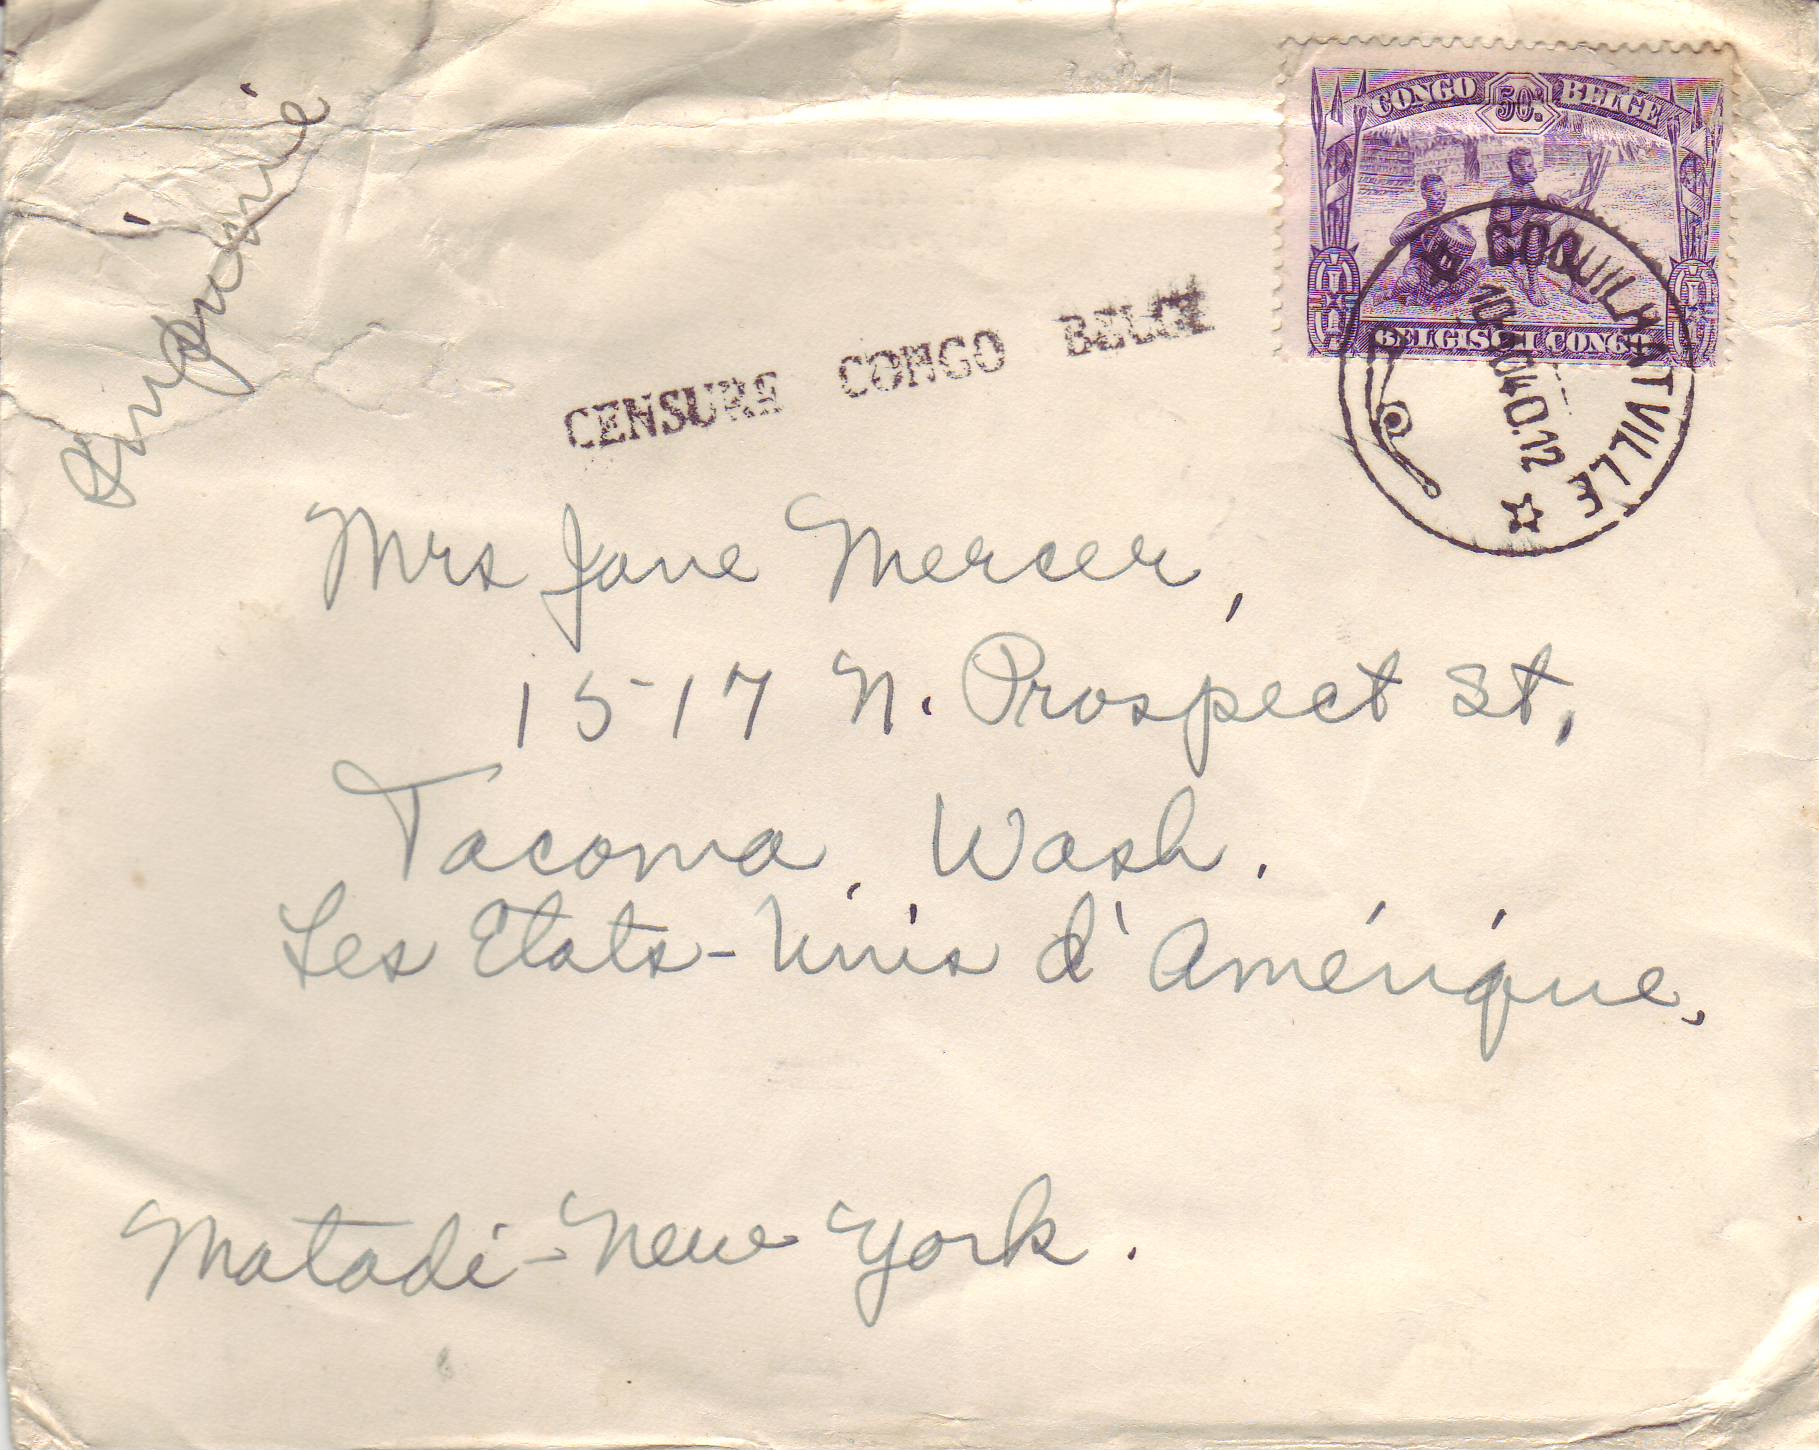 Imprimé
CONGO 50c. BELGE
BELGISCH CONGO
COQUILHATVILLE
CENSURE CONGO BELGE
Mrs Jane Mercer,
1517 N. Prospect St,
Tacoma, Wash.
Les Etats-Unis d'Amérique,
Matadi-New York.